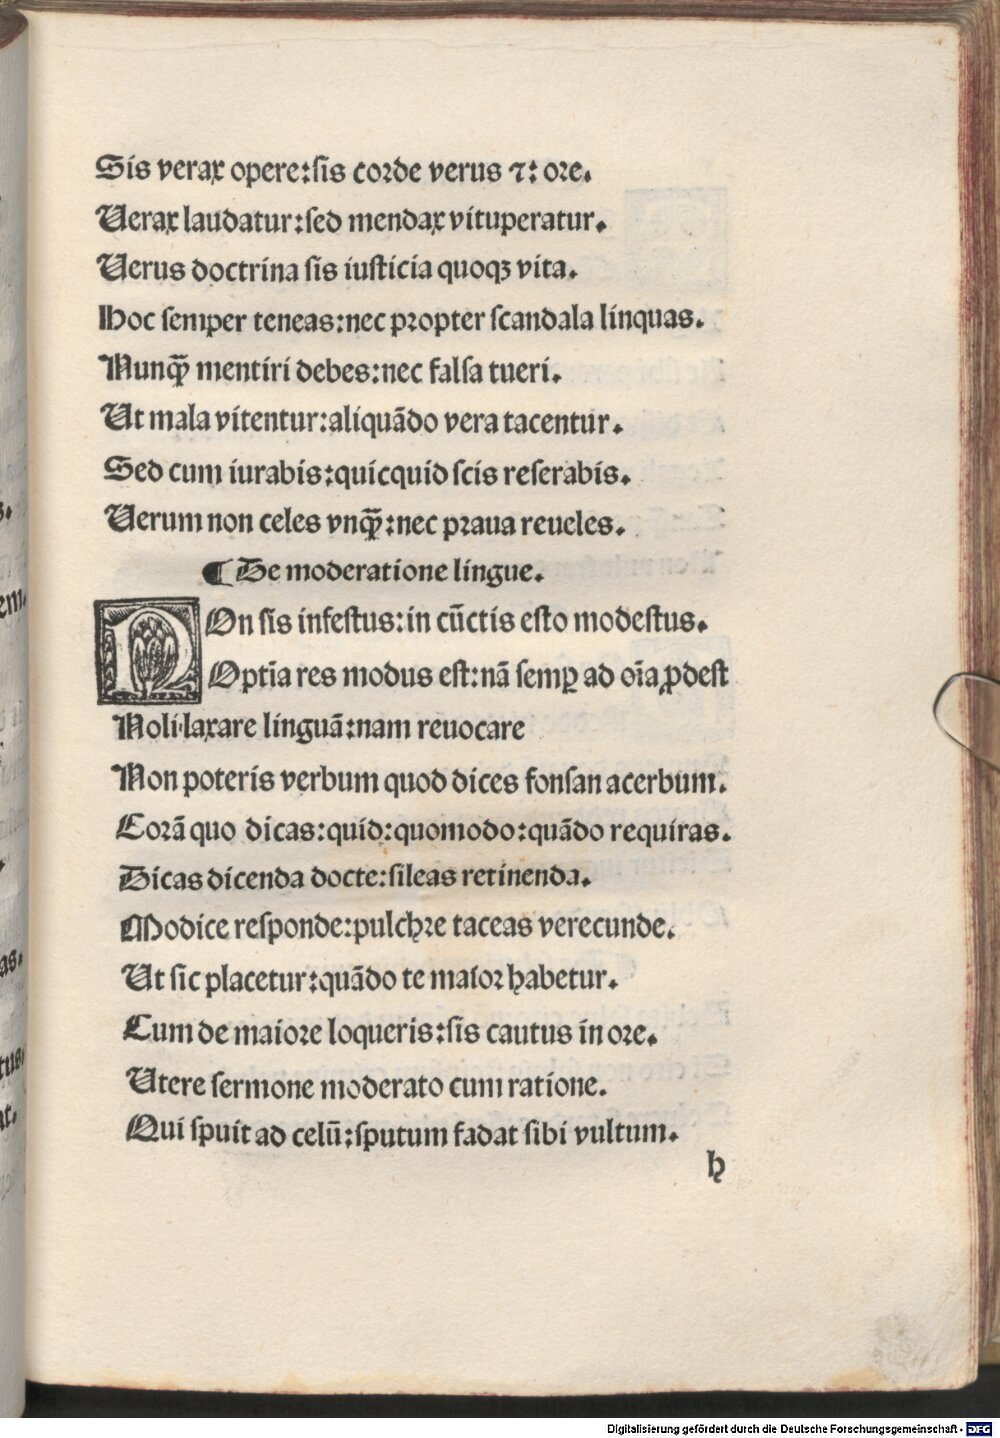 Sis verax opere:sis corde verus ⁊: ore.
Uerax laudatur:sed mendax vituperatur.
Uerus doctrina sis iusticia quoqꝫ vita.
Hoc semper teneas:nec propter scandala linquas.
Nunqꝫ̃ mentiri debes:nec falsa tueri.
Ut mala vitentur:aliquãdo vera tacentur.
Sed cum iurabis:quicquid scis reserabis.
Uerum non celes vnqꝫ̃:nec praua reueles.
¶ De moderatione lingue.
NOn sis infestus:in cũctis esto modestus.
Optĩa res modus est:nã semꝑ ad oĩa ꝓdest
Noli laxare linguã:nam reuocare
Non poteris verbum quod dices fonsan acerbum.
Corã quo dicas:quid:quomodo:quãdo requiras.
Dicas dicenda docte:sileas retinenda.
Modice responde:pulchre taceas verecunde.
Ut sic placetur:quãdo te maior habetur.
Cum de maiore loqueris:sis cautus in ore.
Utere sermone moderato cum ratione.
Qui spuit ad celũ:sputum fadat sibi vultum.
h
Digitalisierung gefördert durch die Deutsche Forschungsgemeinschaft - DFG